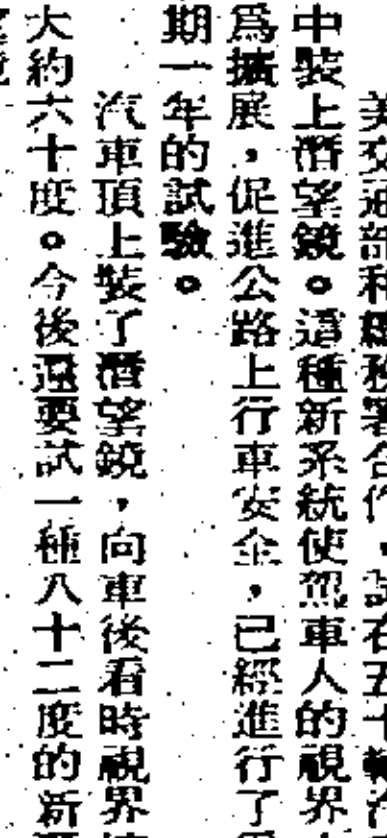 美交通部和總務署合作，試在五十輛汽
中裝上潛望鏡。這種新系統使駕車人的視界
爲擴展，促進公路上行車安全，已經進行了爲
期一年的試驗。
汽車頂上裝了潛望鏡，向車後看時視界
大約六十度。今後還要試一種八十二度的新